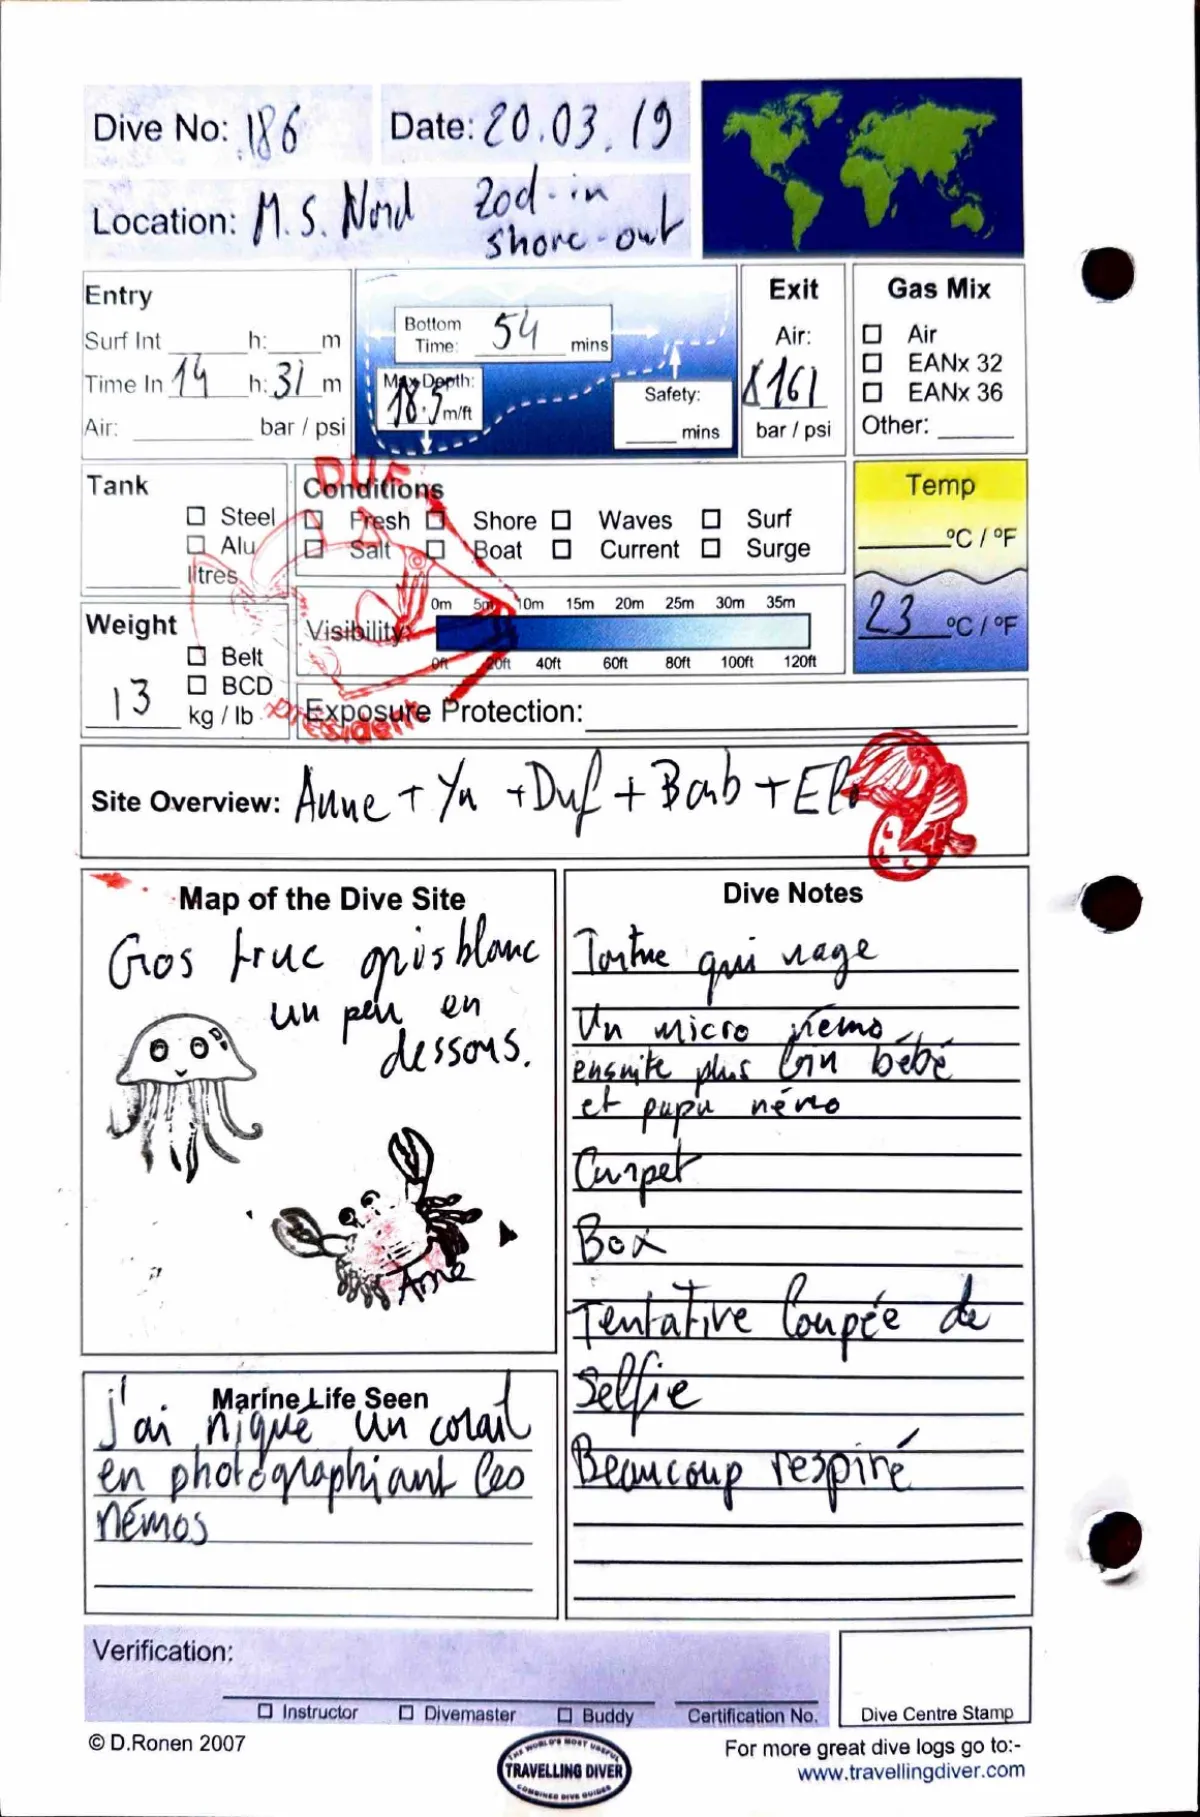 Dive No: 186
Date: 20.03.19
Location: M.S. Nord
Zod-in
shore-out
Entry
Surf Int ____ h: ____ m
Time In 14 h: 31 m
Air: ____ bar / psi
Bottom
Time: 54 mins
Max Depth:
18.5 m/ft
Safety:
____ mins
Exit
Air:
161
bar / psi
Gas Mix
☐ Air
☐ EANx 32
☐ EANx 36
Other: ____
Tank
☐ Steel
☐ Alu
____ litres
DUF
Conditions
☐ Fresh ☐ Shore ☐ Waves ☐ Surf
☐ Salt ☐ Boat ☐ Current ☐ Surge
Temp
____ °C / °F
23 °C / °F
Weight
☐ Belt
☐ BCD
13 kg / lb
0m 5m 10m 15m 20m 25m 30m 35m
Visibility:
0ft 20ft 40ft 60ft 80ft 100ft 120ft
président
Exposure Protection:
Site Overview: Anne + Yu + Duf + Barb +
Map of the Dive Site
Gros truc gris blanc
un peu en
dessous.
Anne
Dive Notes
Tortue qui nage
Un micro némo
ensuite plus loin bébé
et papa némo
Carpet
Box
Tentative loupée de
Selfie
Beaucoup respiré
Marine Life Seen
j'ai niqué un corail
en photographiant les
némos
Verification:
☐ Instructor ☐ Divemaster ☐ Buddy Certification No.
Dive Centre Stamp
© D.Ronen 2007
THE WORLD'S MOST USEFUL
TRAVELLING DIVER
COMBINED DIVE GUIDES
For more great dive logs go to:-
www.travellingdiver.com